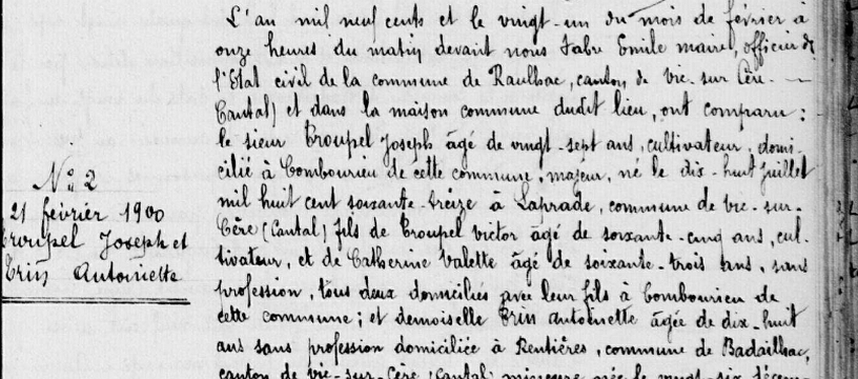 L'an mil neuf cents et le vingt-un du mois de février à
onze heures du matin devant nous Fabre Emile maire, officier de
l'Etat civil de la commune de Raulhac, canton de vic-sur Cère
Cantal) et dans la maison commune dudit lieu, ont comparu :
le sieur Troupel Joseph âgé de vingt-sept ans, cultivateur, domi-
cilié à Combourieu de cette commune, majeur, né le dix-huit juillet
mil huit cent soixante-treize à Laprade, commune de vic-sur-
Cère (Cantal) fils de Troupel victor âgé de soixante-cinq ans, cul-
tivateur, et de Catherine Valette âgé de soixante-trois ans, sans
profession, tous deux domiciliés avec leur fils à Combourieu de
cette commune ; et demoiselle Trin Antoinette âgée de dix-huit
ans sans profession domiciliée à Rentières, commune de Badailhac,
canton de vic-sur-Cère (Cantal) mineure née le vingt-six décem-
N° 2
21 février 1900
Troupel Joseph et
Trin Antoinette